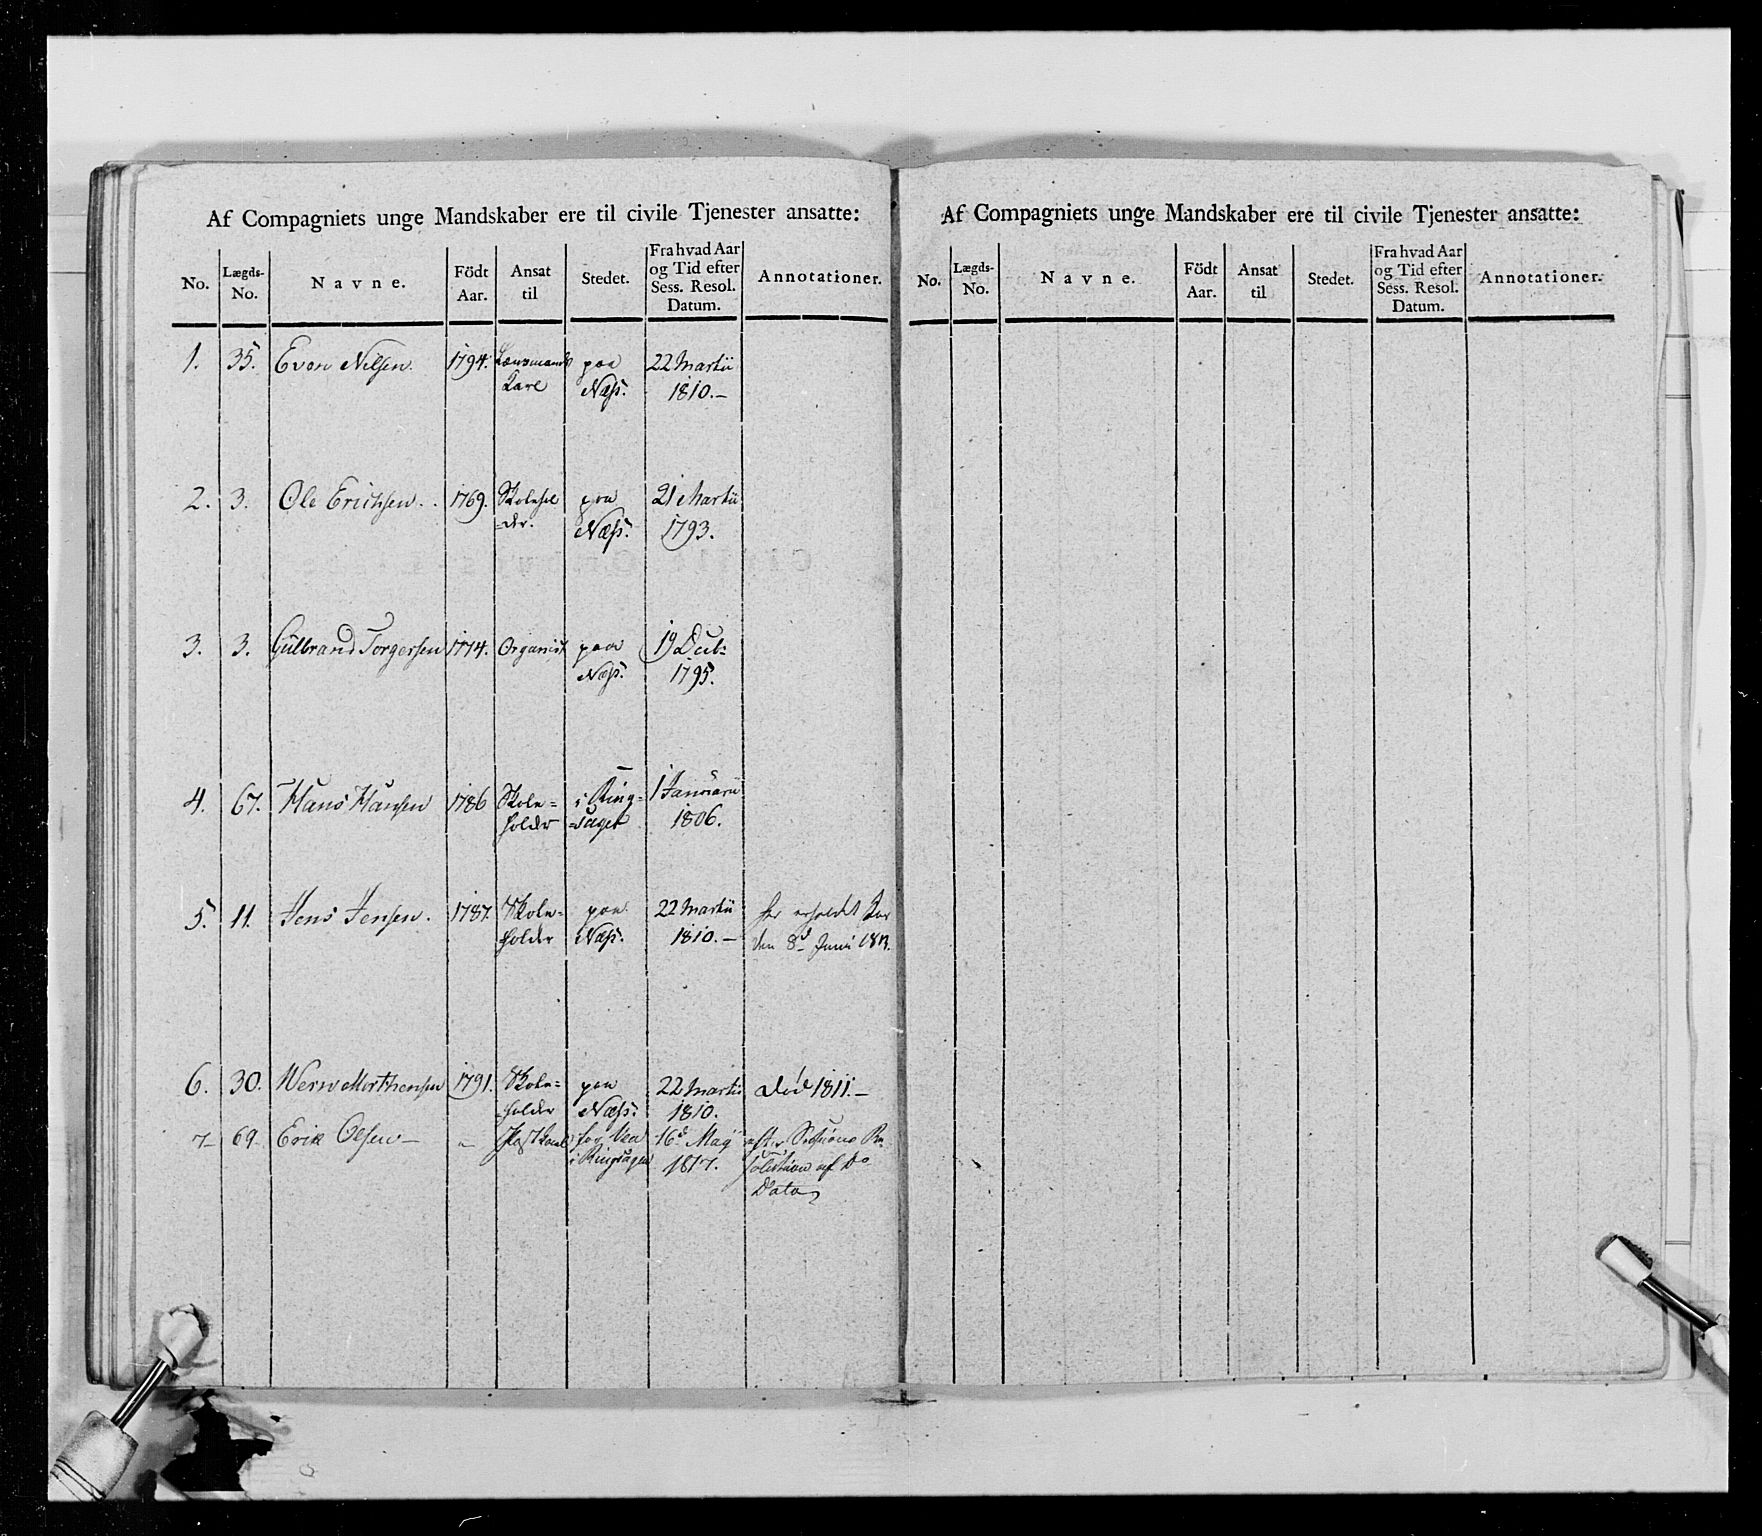 Af Compagniets unge Mandskaber ere til civile Tjenester ansatte:
No. Lægds-No. Navne. Födt Aar. Ansat til Stedet. Fra hvad Aar og Tid efter Sess. Resol. Datum. Annotationer.
1. 35. Even Nilsen. 1794. Lænsmands paa 22 Martii
Karl Næss. 1810.-
2. 3. Ole Erichsen. 1769. Skolehol paa 21 Martii
=der. Næss. 1793.
3. 3. Gulbrand Torgersen 1774. Organist paa 19 Decb:
Næss. 1795.
4. 67. Hans Hansen 1786 Skole= i Ring= 1 Januarii
holder =saget 1806.
5. 11. Jens Jensen. 1787. Skole= paa 22 Martii har erholdet
holder Næss. 1810.- den 8d Juni
6. 30. Morthensen 1791. Skole= paa 22 Martii Död 1811.-
holder Næss. 1810.
7- 69. Erik Olsen- - for 16d. Maij efter Sessions Re
i Ringsager 1817. solution af Do
Dato
Af Compagniets unge Mandskaber ere til civile Tjenester ansatte:
No. Lægds-No. Navne. Födt Aar. Ansat til Stedet. Fra hvad Aar og Tid efter Sess. Resol. Datum. Annotationer.